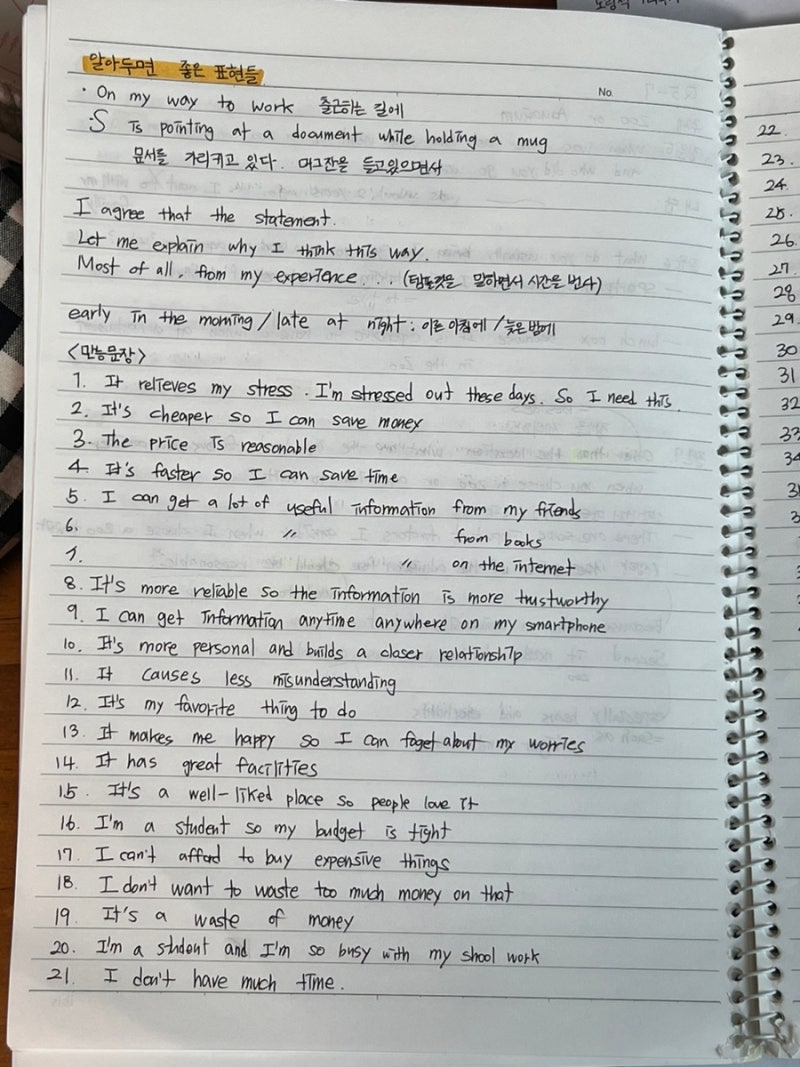 알아두면 좋은 표현들
No.
· On my way to work 출근하는 길에
· S is pointing at a document while holding a mug
문서를 가리키고 있다. 머그잔을 들고있으면서
I agree that the statement.
Let me explain why I think this way.
Most of all, from my experience... (템포컷을 말하면서 시간을 번다)
early in the morning / late at night : 이른 아침에 / 늦은 밤에
<만능문장>
1. It relieves my stress. I'm stressed out these days. So I need this.
2. It's cheaper so I can save money
3. The price is reasonable
4. It's faster so I can save time
5. I can get a lot of useful information from my friends
6. 〃 from books
7. 〃 on the internet
8. It's more reliable so the information is more trustworthy
9. I can get information anytime anywhere on my smartphone
10. It's more personal and builds a claser relationship
11. It causes less misunderstanding
12. It's my favorite thing to do
13. It makes me happy so I can foget about my worries
14. It has great facilities
15. It's a well-liked place so people love it
16. I'm a student so my budget is tight
17. I can't afford to buy expensive things
18. I don't want to waste too much money on that
19. It's a waste of money
20. I'm a student and I'm so busy with my shool work
21. I don't have much time.
22.
23.
24.
25.
26.
27.
28
29.
30
31
32
33
34